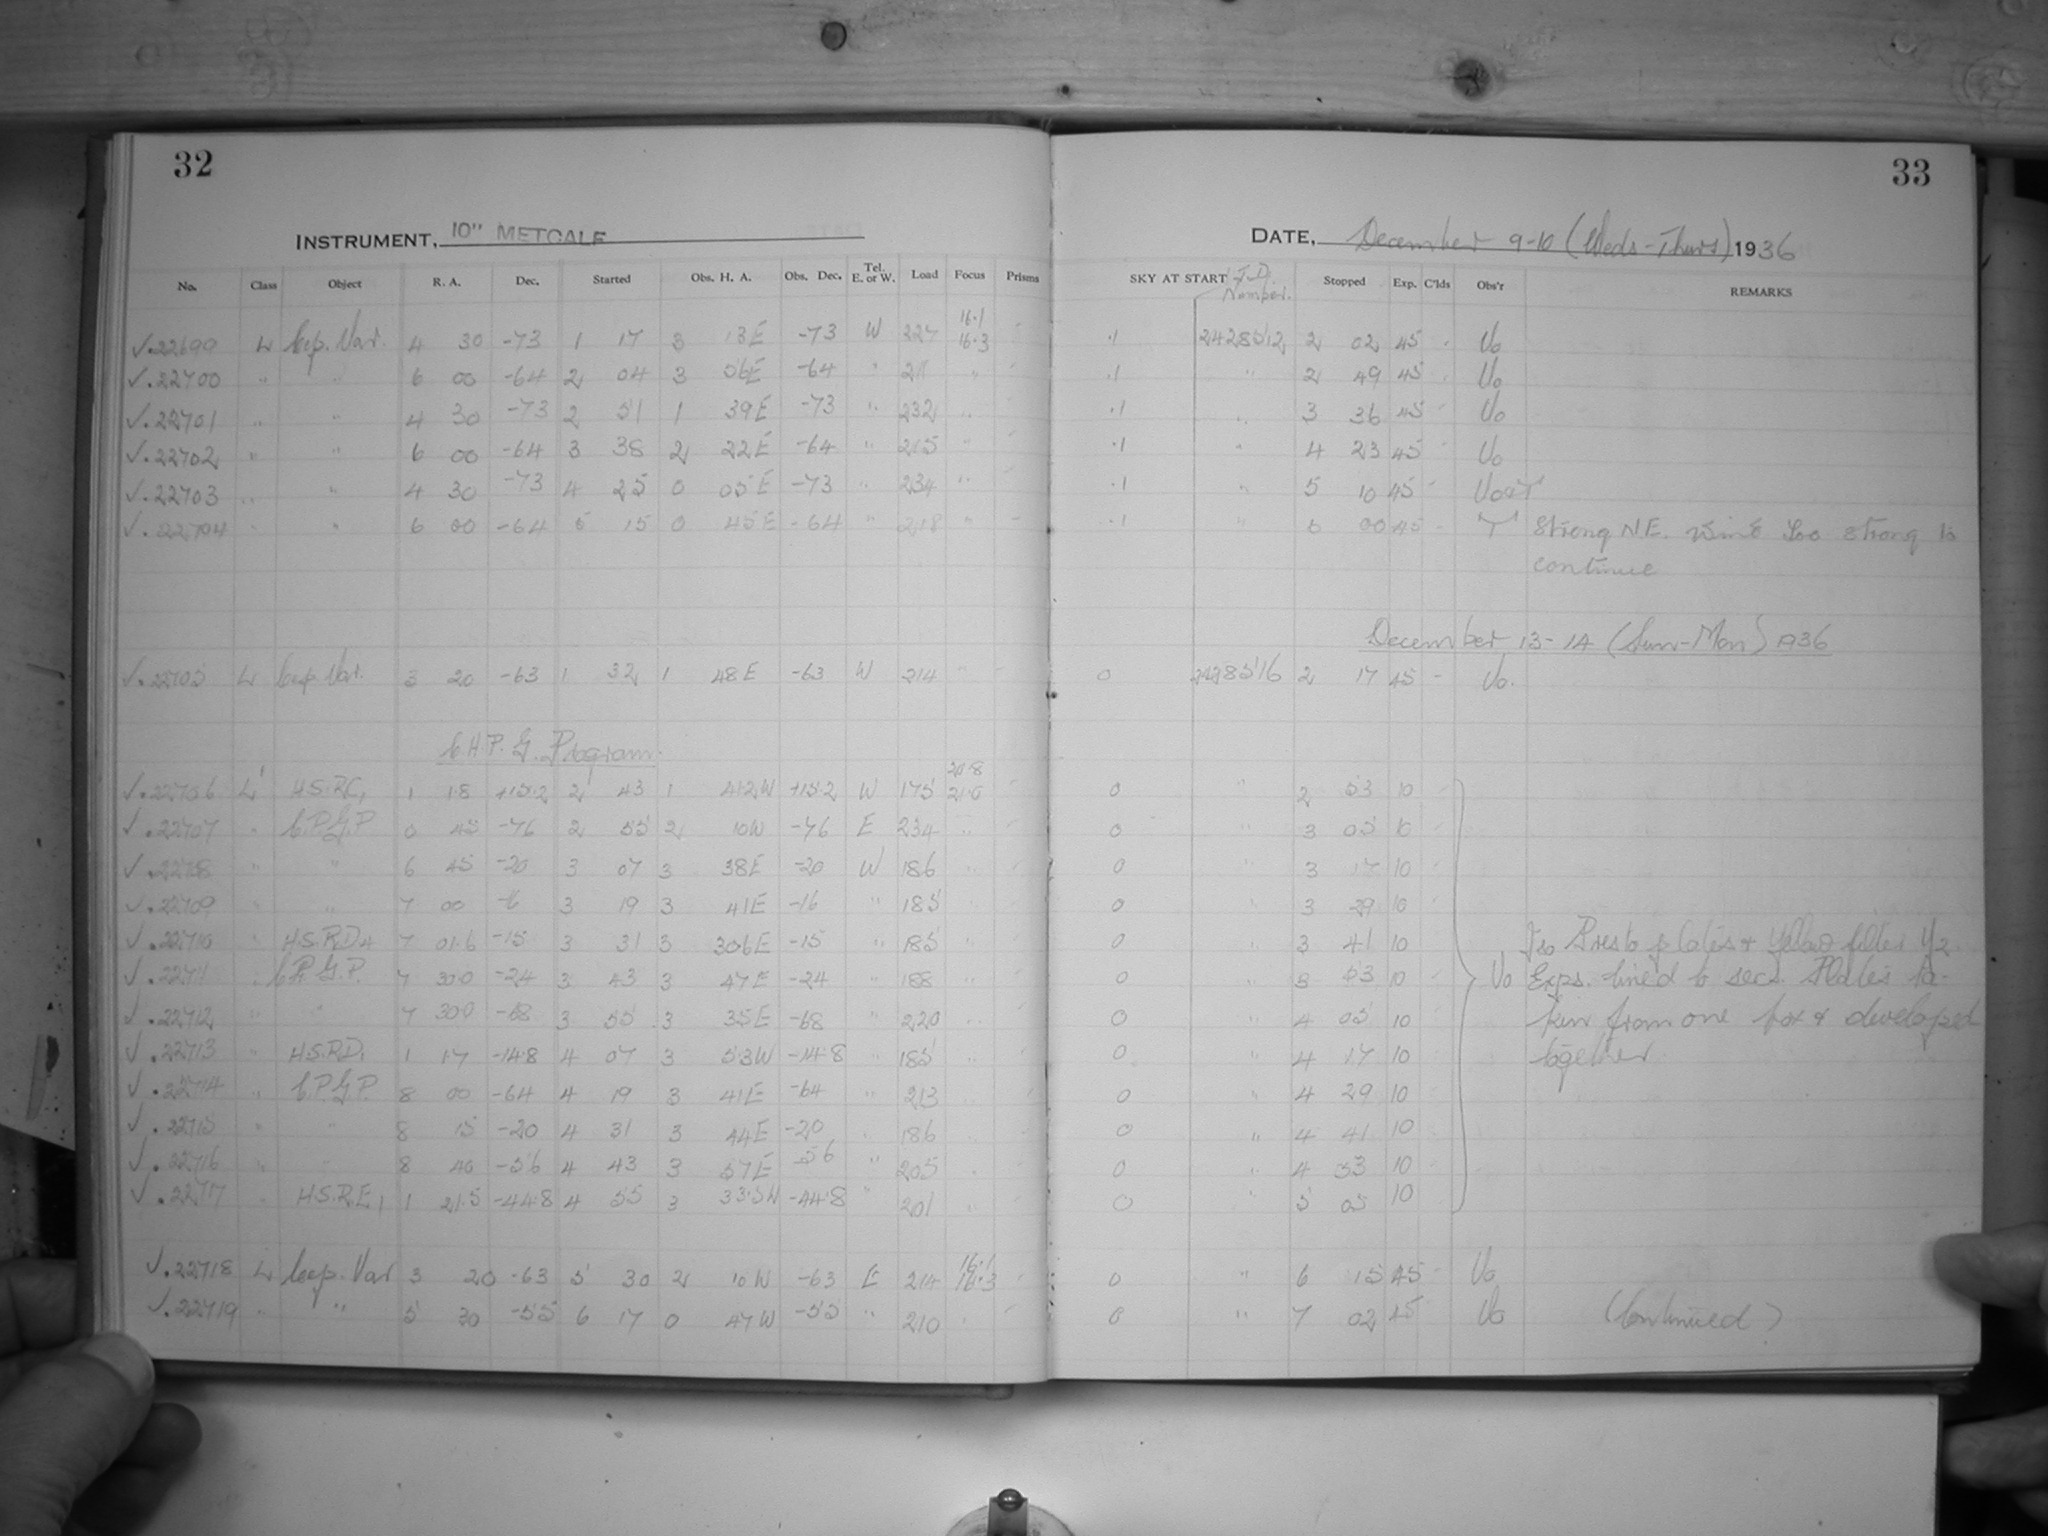 32
33
INSTRUMENT, 10" METCALF
DATE, December 9-10 (Weds-Thurs) 1936
No. Class Object R. A. Dec. Started Obs. H. A. Obs. Dec. Tel. E. or W. Load Focus Prisms SKY AT START J.D. Number. Stopped Exp. C'lds Obs'r REMARKS
√.22699 L Cep. Var. 4 30 -73 1 17 3 13E -73 W 227 16.1 16.3 .1 2428512 2 02 45 Vo
√.22700 " " 6 00 -64 2 04 3 06E -64 " " .1 " 2 49 45 Vo
√.22701 " " 4 30 -73 2 51 1 39E -73 " 232 " .1 " 3 36 45 Vo
√.22702 " " 6 00 -64 3 38 2 22E -64 " 215 " .1 " 4 23 45 Vo
√.22703 " " 4 30 -73 4 25 0 05E -73 " 234 " .1 " 5 10 45 Vo+T
√.22704 " " 6 00 -64 5 15 0 45E -64 " 218 " .1 " 6 00 45 T Strong N.E. wind too strong to
continue
December 13-14 (Sun-Mon) 1936
√.22705 L Cep. Var. 3 20 -63 1 32 1 48E -63 W 214 0 2428516 2 17 45 - Vo.
C.H.P.G. Program.
√.22706 L' H.S.R.C1 1 18 +15.2 2 43 1 41.2W +15.2 W 175 0 " 2 53 10
√.22707 " C.P.G.P. 0 45 -76 2 55 2 10W -76 E 234 " 0 " 3 05 10
√.22708 " " 6 45 -20 3 07 3 38E -20 W 186 " 0 " 3 17 10
√.22709 " " 7 00 3 19 3 41E -16 " 185 " 0 " 3 29 10
√.22710 " H.S.R.D4 7 01.6 -15 3 31 3 30.6E -15 " 185 " 0 " 3 41 10 Iso Presto plates & Yellow filter Y2
√.22711 " C.P.G.P. 7 30.0 -24 3 43 3 47E -24 " 188 " 0 " 3 53 10 Vo Exps. timed to secs. Plates ta-
√.22712 " " 7 30.0 -68 3 55 3 35E -68 " 220 " 0 " 4 05 10 ken from one box & developed
√.22713 " H.S.R.D1 1 17 -14.8 4 07 3 5.3W -14.8 " 185 " 0 " 4 17 10 together
√.22714 " C.P.G.P. 8 00 -64 4 19 3 41E -64 " 213 " 0 " 4 29 10
√.22715 " " 8 15 -20 4 31 3 44E -20 " 186 " 0 " 4 41 10
√.22716 " " 8 40 -56 4 43 3 57E -56 " 205 " 0 " 4 53 10
√.22717 " H.S.R.E1 1 21.5 -44.8 4 55 3 33.5W -44.8 " 201 " 0 " 5 05 10
√.22718 L Cep. Var 3 20 -63 5 30 2 10W -63 E 214 16.1 16.3 0 " 6 15 45 - Vo
√.22719 " " 5 30 -55 6 17 0 47W -55 " 210 " 0 " 7 02 45 Vo (Continued)